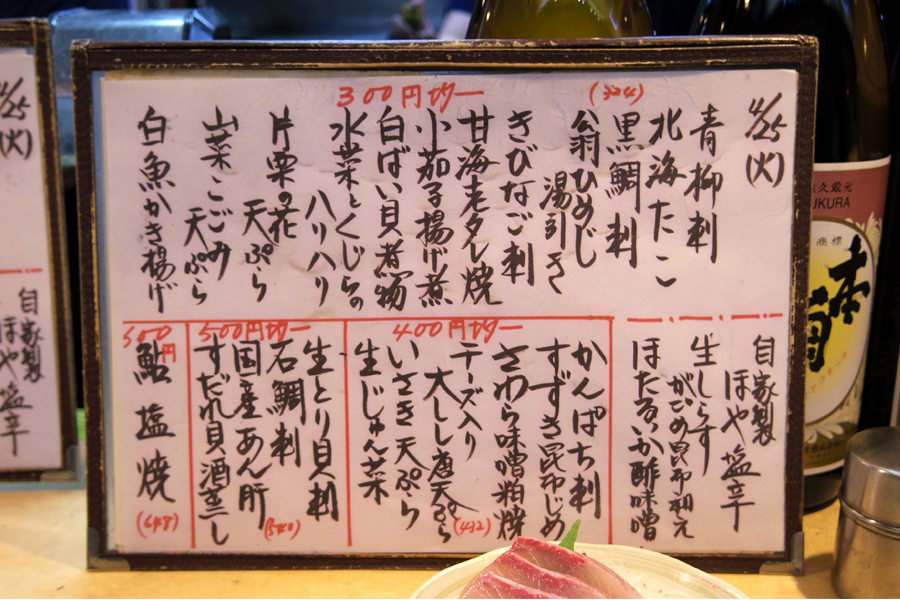 4/25
(火)
300円均一
(324)
青柳刺
北海たこ
黒鯛刺
翁ひめじ
湯引き
きびなご刺
甘海老タレ焼
小茄子揚げ煮
白ばい貝煮物
水菜とくじらの
ハリハリ
片栗の花
天ぷら
山菜こごみ
天ぷら
白魚かき揚げ
自家製
ほや塩辛
生しらす
がごめ昆布和え
ほたるいか酢味噌
400円均一
かんぱち刺
すずき昆布じめ
さわら味噌粕焼
チーズ入り
大しし唐天ぷら
いさき天ぷら
生じゅん菜
(432)
500円均一
生とり貝刺
石鯛刺
国産あん肝
すだれ貝酒蒸し
(540)
600円
鮎塩焼
(648)
4/25
(火)
自家製
ほや塩辛
久蔵元
KURA
商標
本菊